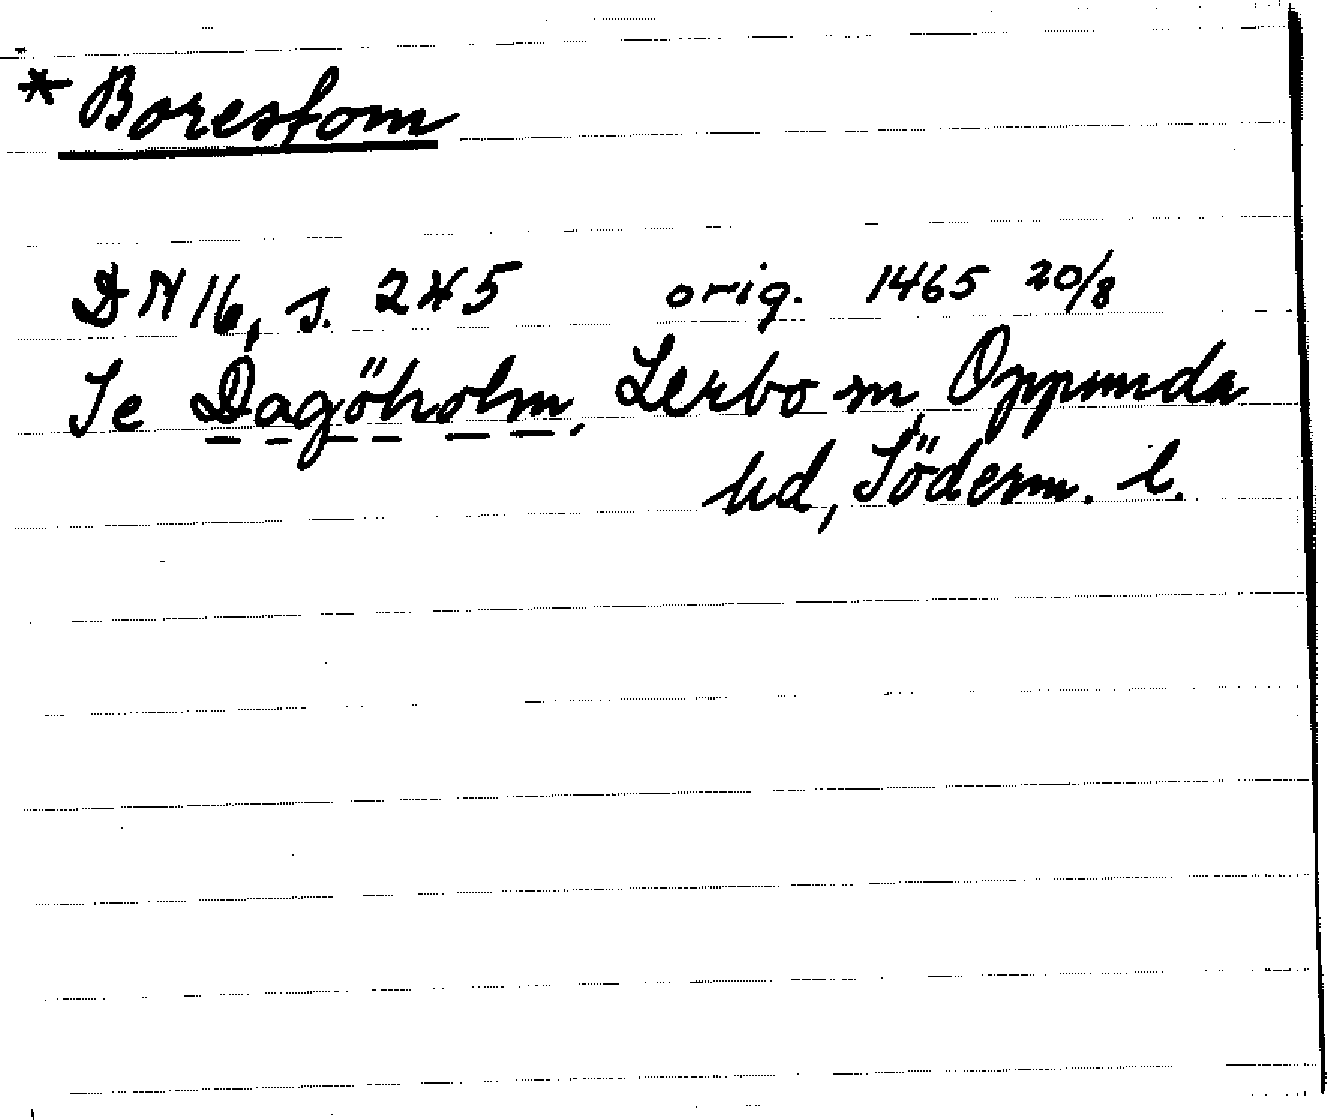 * Borestom
DN 16, s. 245 orig. 1465 20/8
Se Dagöholm, Lerbo sn, Oppunda
hd, Söderm. l.